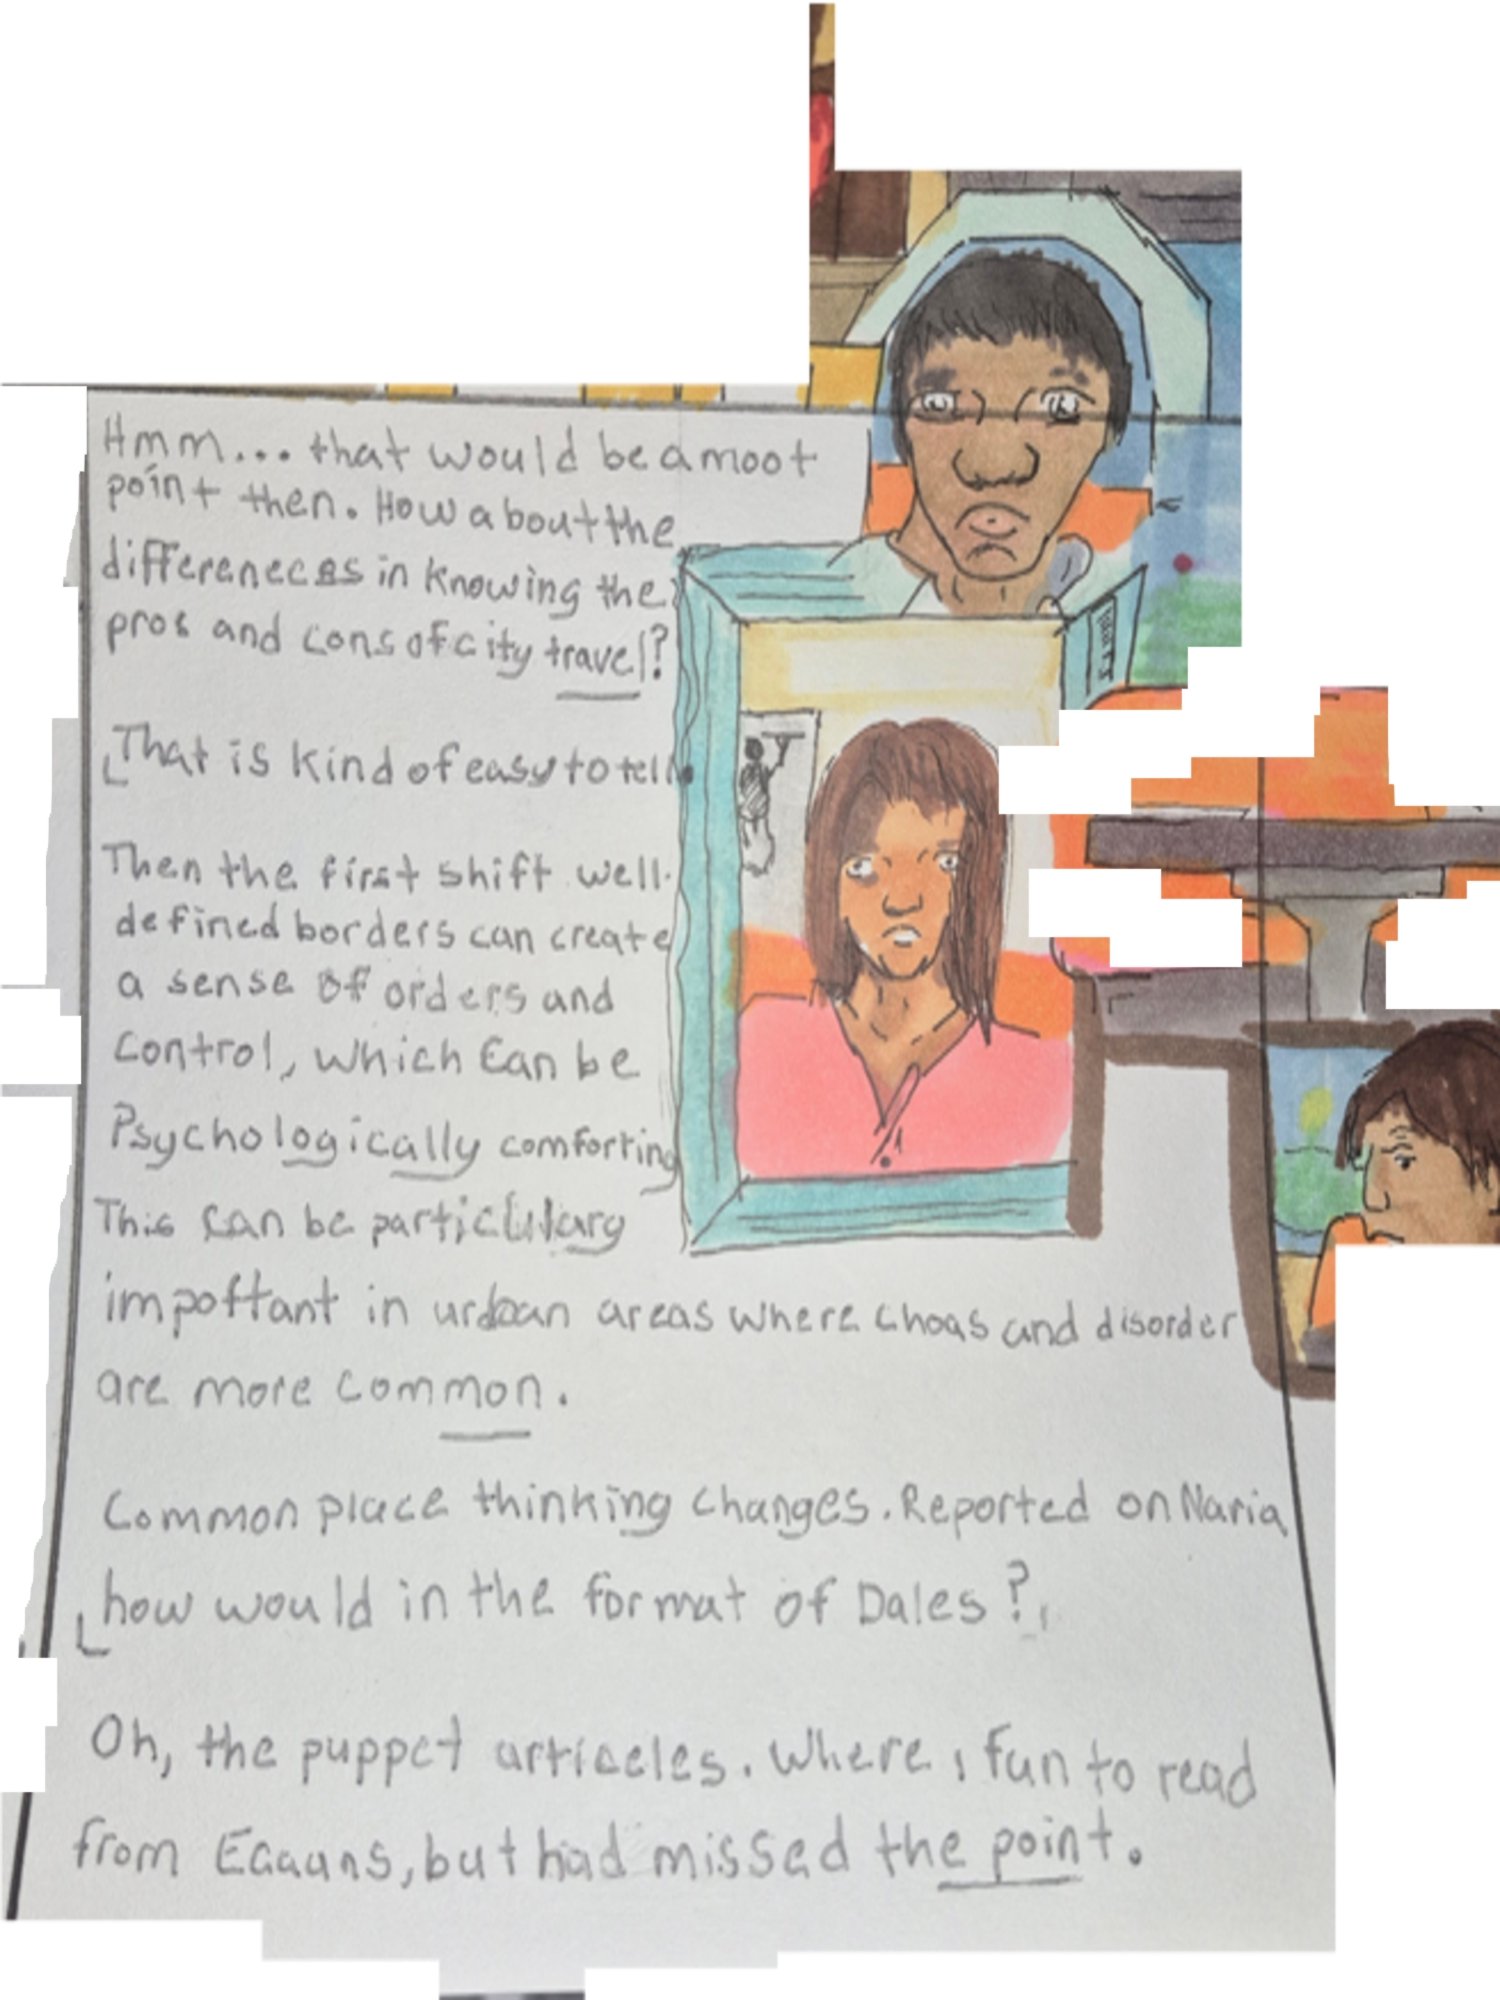 Hmm... that would be a moot
point then. How about the
differeneces in knowing the
pros and cons of city travel?
That is kind of easy to tell.
Then the first shift well-
defined borders can create
a sense of orders and
control, which can be
Psychologically comforting
This can be particlulary
impoftant in urdban areas where choas and disorder
are more common.
Common place thinking changes. Reported on Naria
how would in the format of Dales?
Oh, the puppet articeles. Where, fun to read
from Eaauns, but had missed the point.